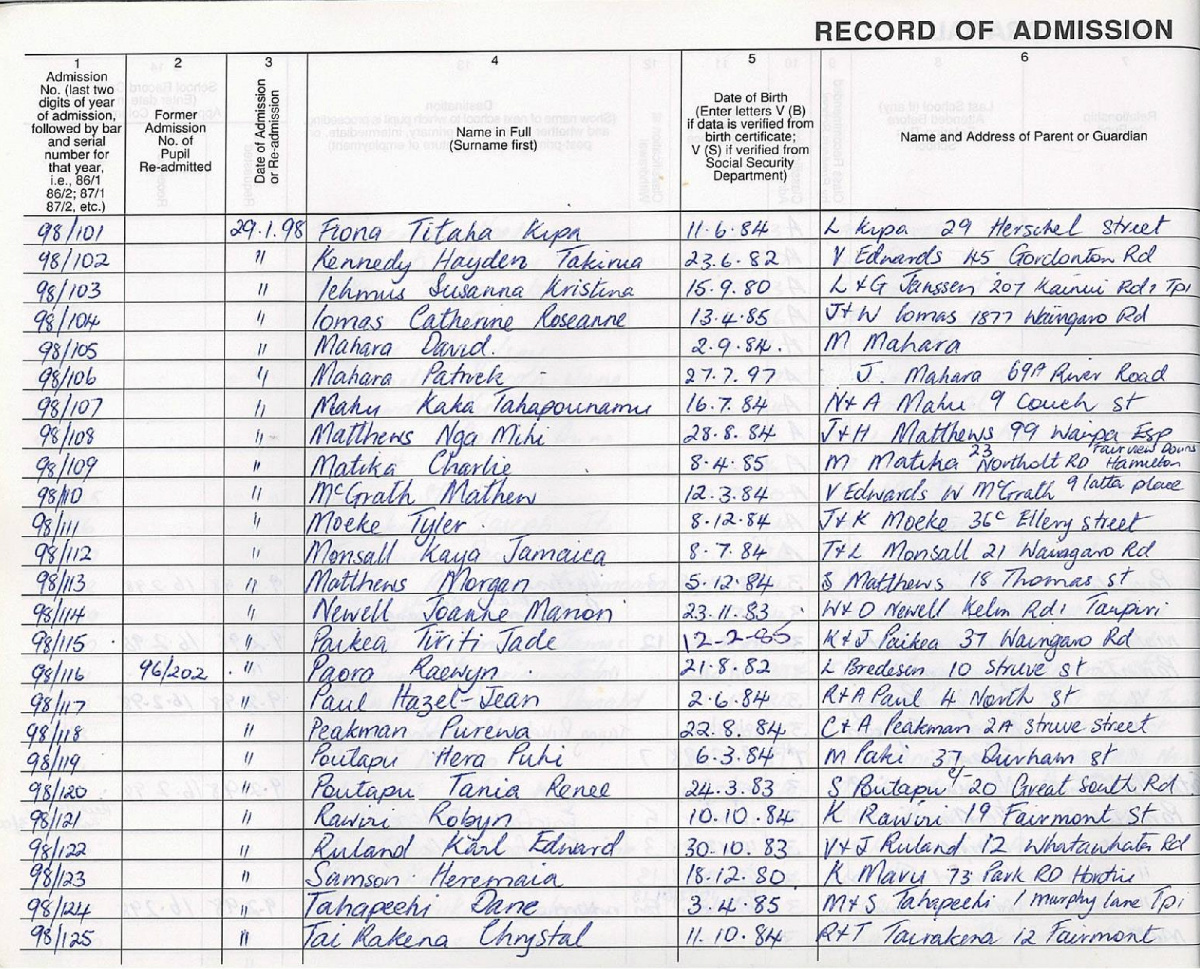 RECORD OF ADMISSION
1
Admission
No. (last two
digits of year
of admission,
followed by bar
and serial
number for
that year,
i.e., 86/1
86/2; 87/1
87/2, etc.)
2
Former
Admission
No. of
Pupil
Re-admitted
3
Date of Admission
or Re-admission
4
Name in Full
(Surname first)
5
Date of Birth
(Enter letters V (B)
if data is verified from
birth certificate;
V (S) if verified from
Social Security
Department)
6
Name and Address of Parent or Guardian
98/101 29.1.98 Fiona Titaha Kipa 11.6.84 L Kipa 29 Herschel Street
98/102 " Kennedy Hayden Takinia 23.6.82 V Edwards 45 Gordonton Rd
98/103 " Susanna Kristina 15.9.80 L+G Janssen 207 Kainui Rd1 Tpi
98/104 " Lomas Catherine Roseanne 13.4.85 J+W Lomas 1877 Waingaro Rd
98/105 " Mahara David. 2.9.84 M Mahara
98/106 " Mahara Patrick 27.7.97 J. Mahara 69A River Road
98/107 " Mahu Kaka Tahapounamu 16.7.84 N+A Mahu 9 Couch st
98/108 " Matthews Nga Mihi 28.8.84 J+H Matthews 99 Waipa Esp
98/109 " Matika Charlie 8.4.85 M Matika 23 Northolt RD Fairview Downs Hamilton
98/110 " McGrath Mathew 12.3.84 V Edwards W McGrath 9 latta place
98/111 " Moeke Tyler 8.12.84 J+K Moeke 36c Ellery street
98/112 " Monsall Kaya Jamaica 8.7.84 T+L Monsall 21 Waingaro Rd
98/113 " Matthews Morgan 5.12.84 S Matthews 18 Thomas st
98/114 " Newell Joanne Manon 23.11.83 W+D Newell Kelm Rd1 Taupiri
98/115 " Paikea Tiriti Jade 12-2-85 K+J Paikea 37 Waingaro Rd
98/116 96/202 " Paora Raewyn 21.8.82 L Bredesen 10 Struve st
98/117 " Paul Hazel-Jean 2.6.84 R+A Paul 4 North st
98/118 " Peakman Purewa 22.8.84 C+A Peakman 2A Struve street
98/119 " Poutapu Hera Puhi 6.3.84 M Paki 37 Durham st
98/120 " Poutapu Tania Renee 24.3.83 S Poutapu c/- 20 Great South Rd
98/121 " Rawiri Robyn 10.10.84 K Rawiri 19 Fairmont St
98/122 " Ruland Karl Edward 30.10.83 V+J Ruland 12 Whatawhata Rd
98/123 " Samson Heremaia 18.12.80 K Maru 73 Park RD Horotiu
98/124 " Tahapeehi Dane 3.4.85 M+S Tahapeehi 1 murphy lane Tpi
98/125 " Tai Rakena Chrystal 11.10.84 R+T Tairakena 12 Fairmont